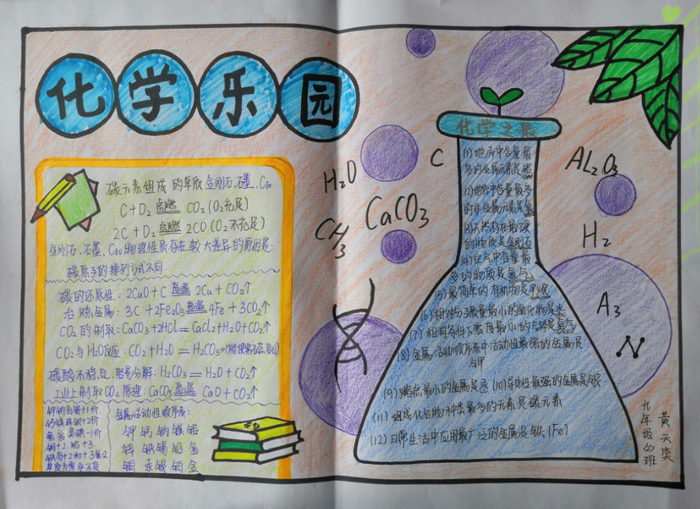 化学乐园
碳元素组成的单质金刚石、石墨、C60
C+O2 点燃 CO2 (O2充足)
2C+O2 点燃 2CO (O2不充足)
金刚石、石墨、C60物理性质存在较大差异的原因是
碳原子的排列方式不同
碳的还原性: 2CuO+C 高温 2Cu+CO2↑
3C+2Fe2O3 高温 4Fe+3CO2↑
CO2的制取: CaCO3+2HCl=CaCl2+H2O+CO2↑
CO2与H2O反应: CO2+H2O=H2CO3
碳酸不稳定,易分解: H2CO3=H2O+CO2↑
工业上制取CO2原理: CaCO3 高温 CaO+CO2↑
金属活动性顺序:
钾钙钠镁铝
锌铁锡铅氢
铜汞银铂金
H2O
C
CH3
CaCO3
AL2O3
H2
A3
化学之最
(1)地壳中含量最
多的金属元素是铝
(2)地壳中含量最
多的非金属元素是氧
(3)天然物质中最硬
的物质是金刚石
(4)空气中含量最
多的物质是氮气
(5)最简单的有机物是甲烷
(6)相对分子质量最小的氧化物是水
(7)相同条件下密度最小的气体是氢气
(8)金属活动顺序表中活动性最强的金属是
钾
(9)熔点最小的金属是汞 (10)导电性最强的金属是银
(11)组成化合物种类最多的元素是碳元素
(12)日常生活中应用最广泛的金属是铁(Fe)
九年级(2)班